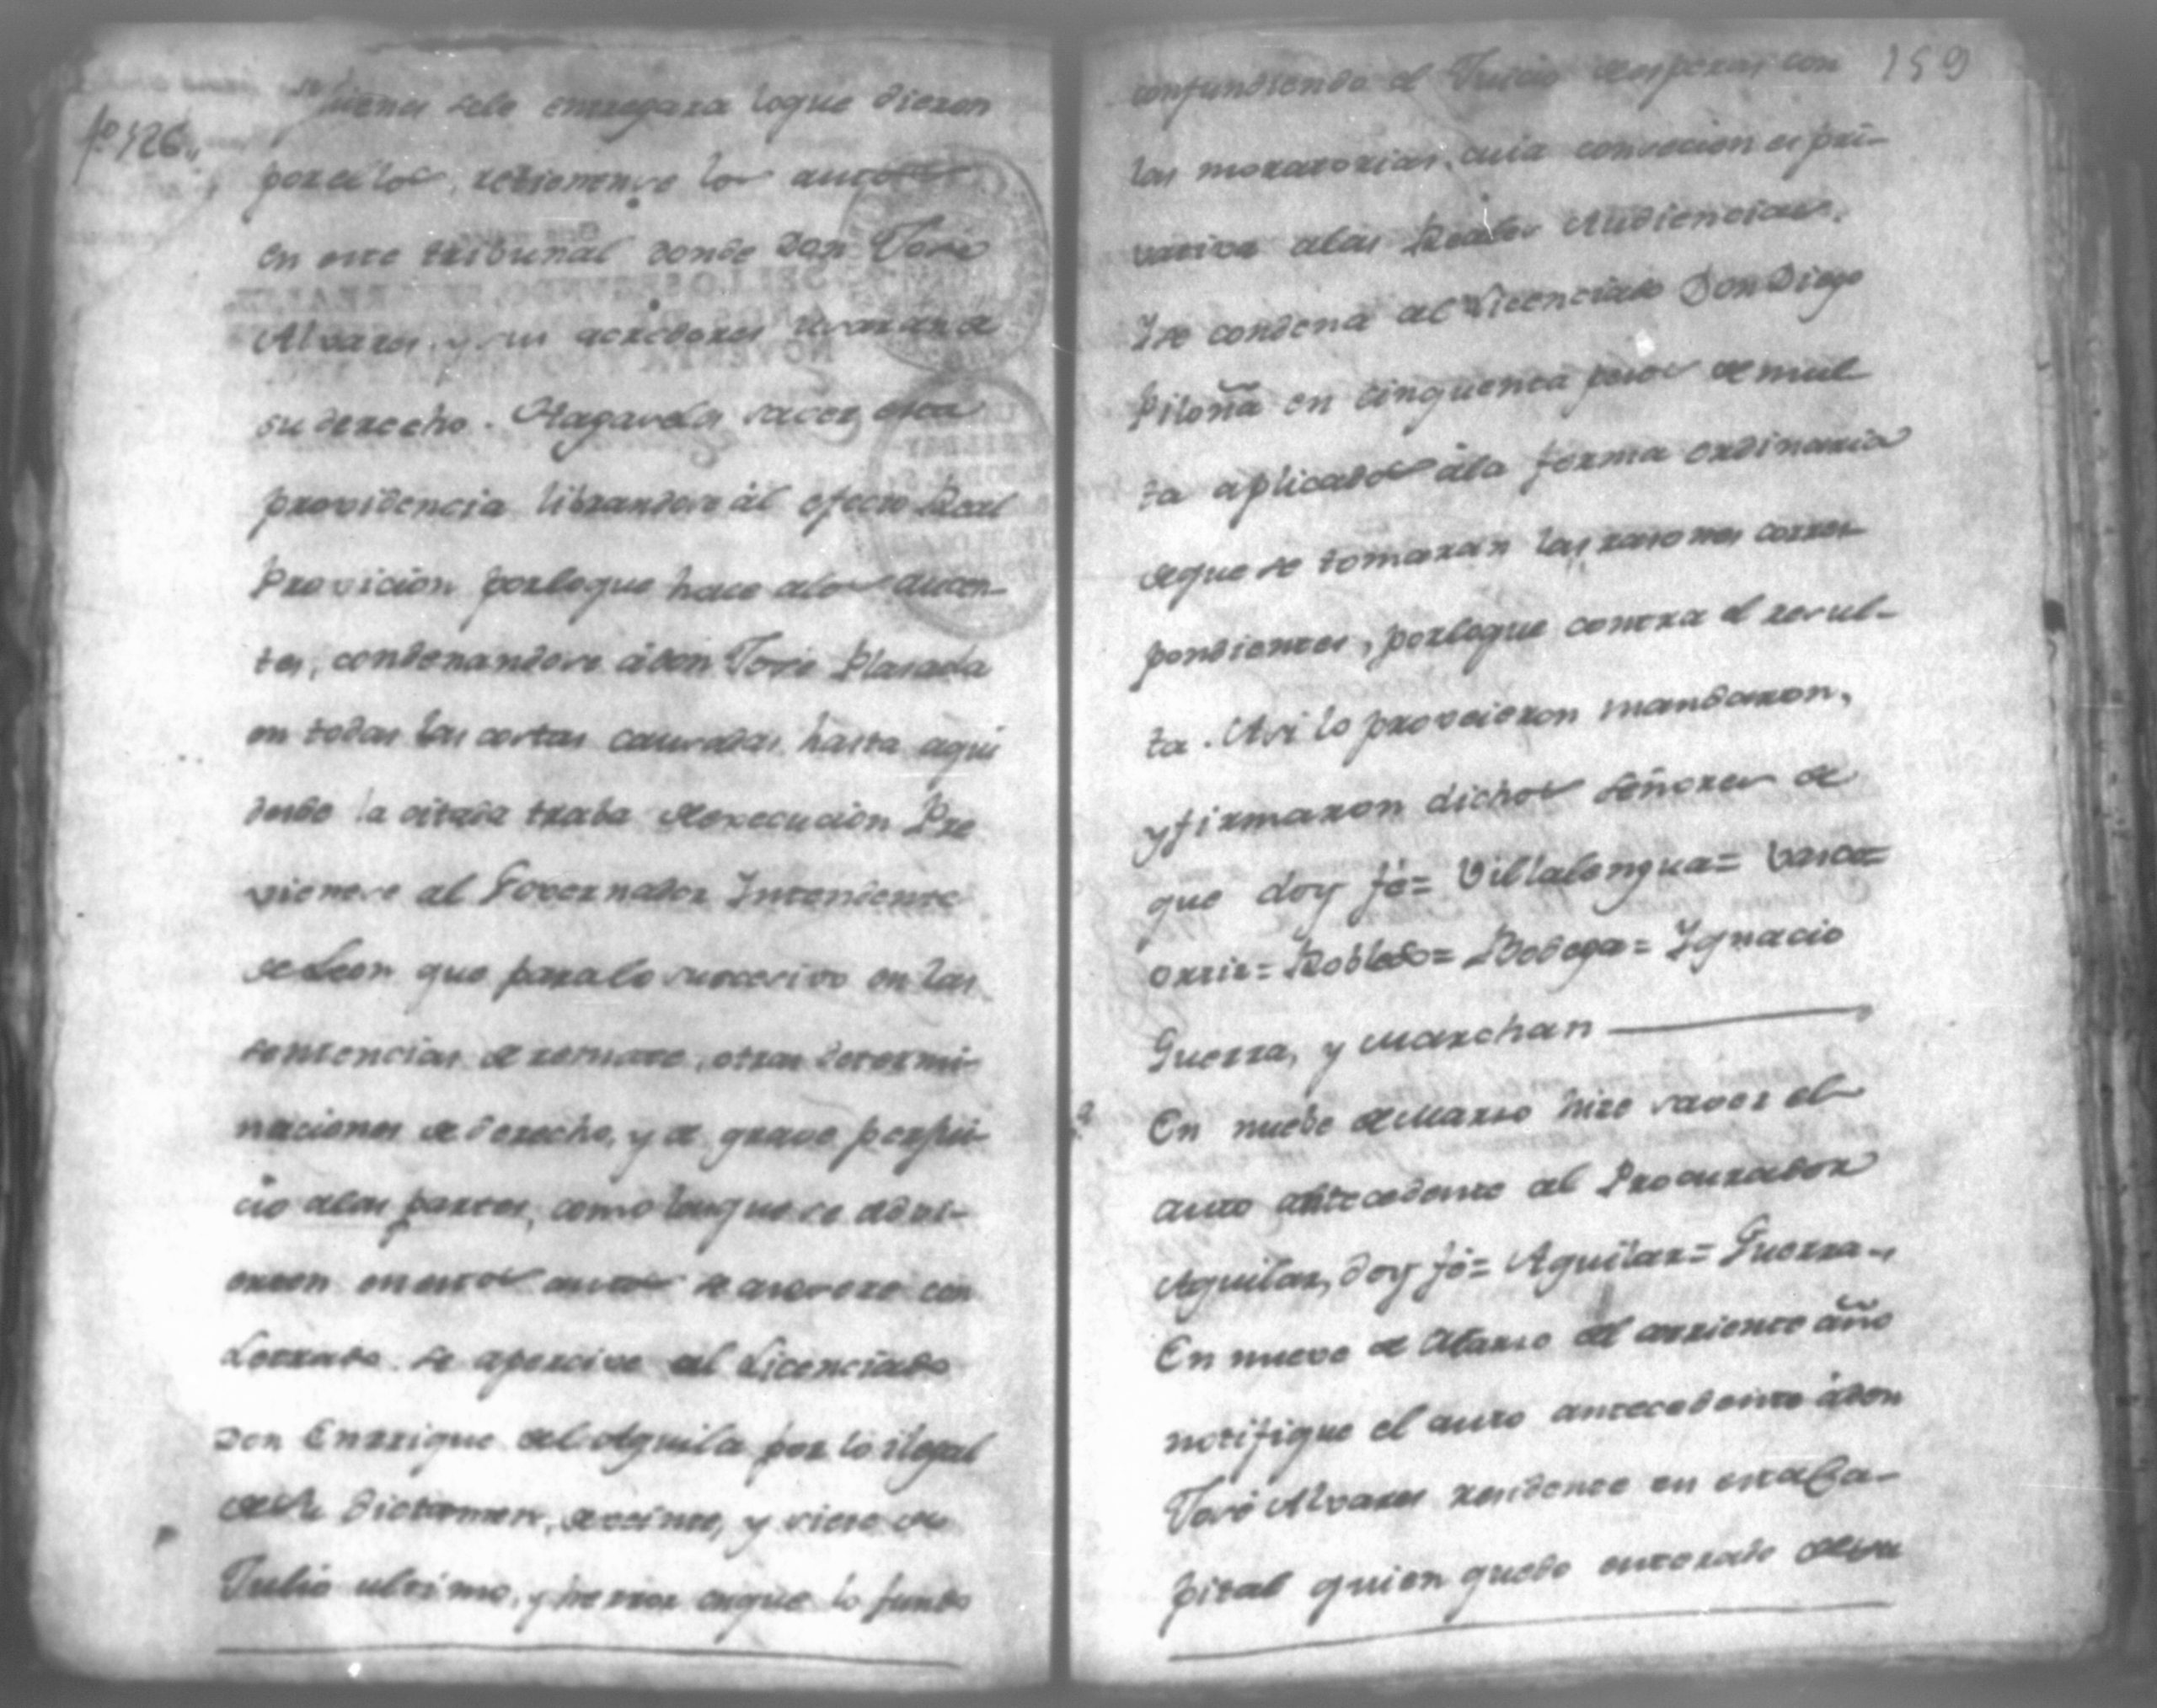 fo. 126.
quienes sele entregara loque dieron
por ellos, retiemense los autos
en este tribunal donde Don Jose
Alvares, y sus acredores usaran de
su derecho. Hagavela saver esta
providencia librandose ál efecto Real
Provicion porloque hace alos aucen-
tes, condenandose ádon Jose Plasaola
en todas las costas causadas hasta aqui
desde la citada traba de execucion Pre
vienese al Governador Intendente
de Leon que paralo succesivo en las
sentencias de remate, otras determi-
naciones de derecho, y de grave perjui-
cio alas partes, como lasque se advi-
erten en estos autos se asesore con
Letrado. Se apercive al Licenciado
Don Enrrique del Aguila por lo ilegal
desu dictamen, de veinte, y siete de
Julio ultimo, y herror enque lo fundo
159
confundiendo el Juicio de esperas con
las moratorias, cuia concecion es pri-
vativa alas Reales Audiencias.
Ise condena al Licenciado Don Diego
Piloña en cinquenta pesos de mul
ta aplicados ála forma ordinaria
deque se tomaran las rasones corres
pondientes, porloque contra el resul-
ta. Asi lo proveieron mandaron,
y firmaron dichos Señores de
que doy fé= Villalengua= Basco=
orriz= Robledo= Bodega= Ignacio
Guerra, y Marchan
En nuebe de Marso hize saver el
auto antecedente al Procurador
Aguilar, doy fé= Aguilar= Guerra..
En nueve de Marso del corriente año
notifique el auto antecedente ádon
José Alvares residente en esta Ca-
pital quien quedo enterado desu